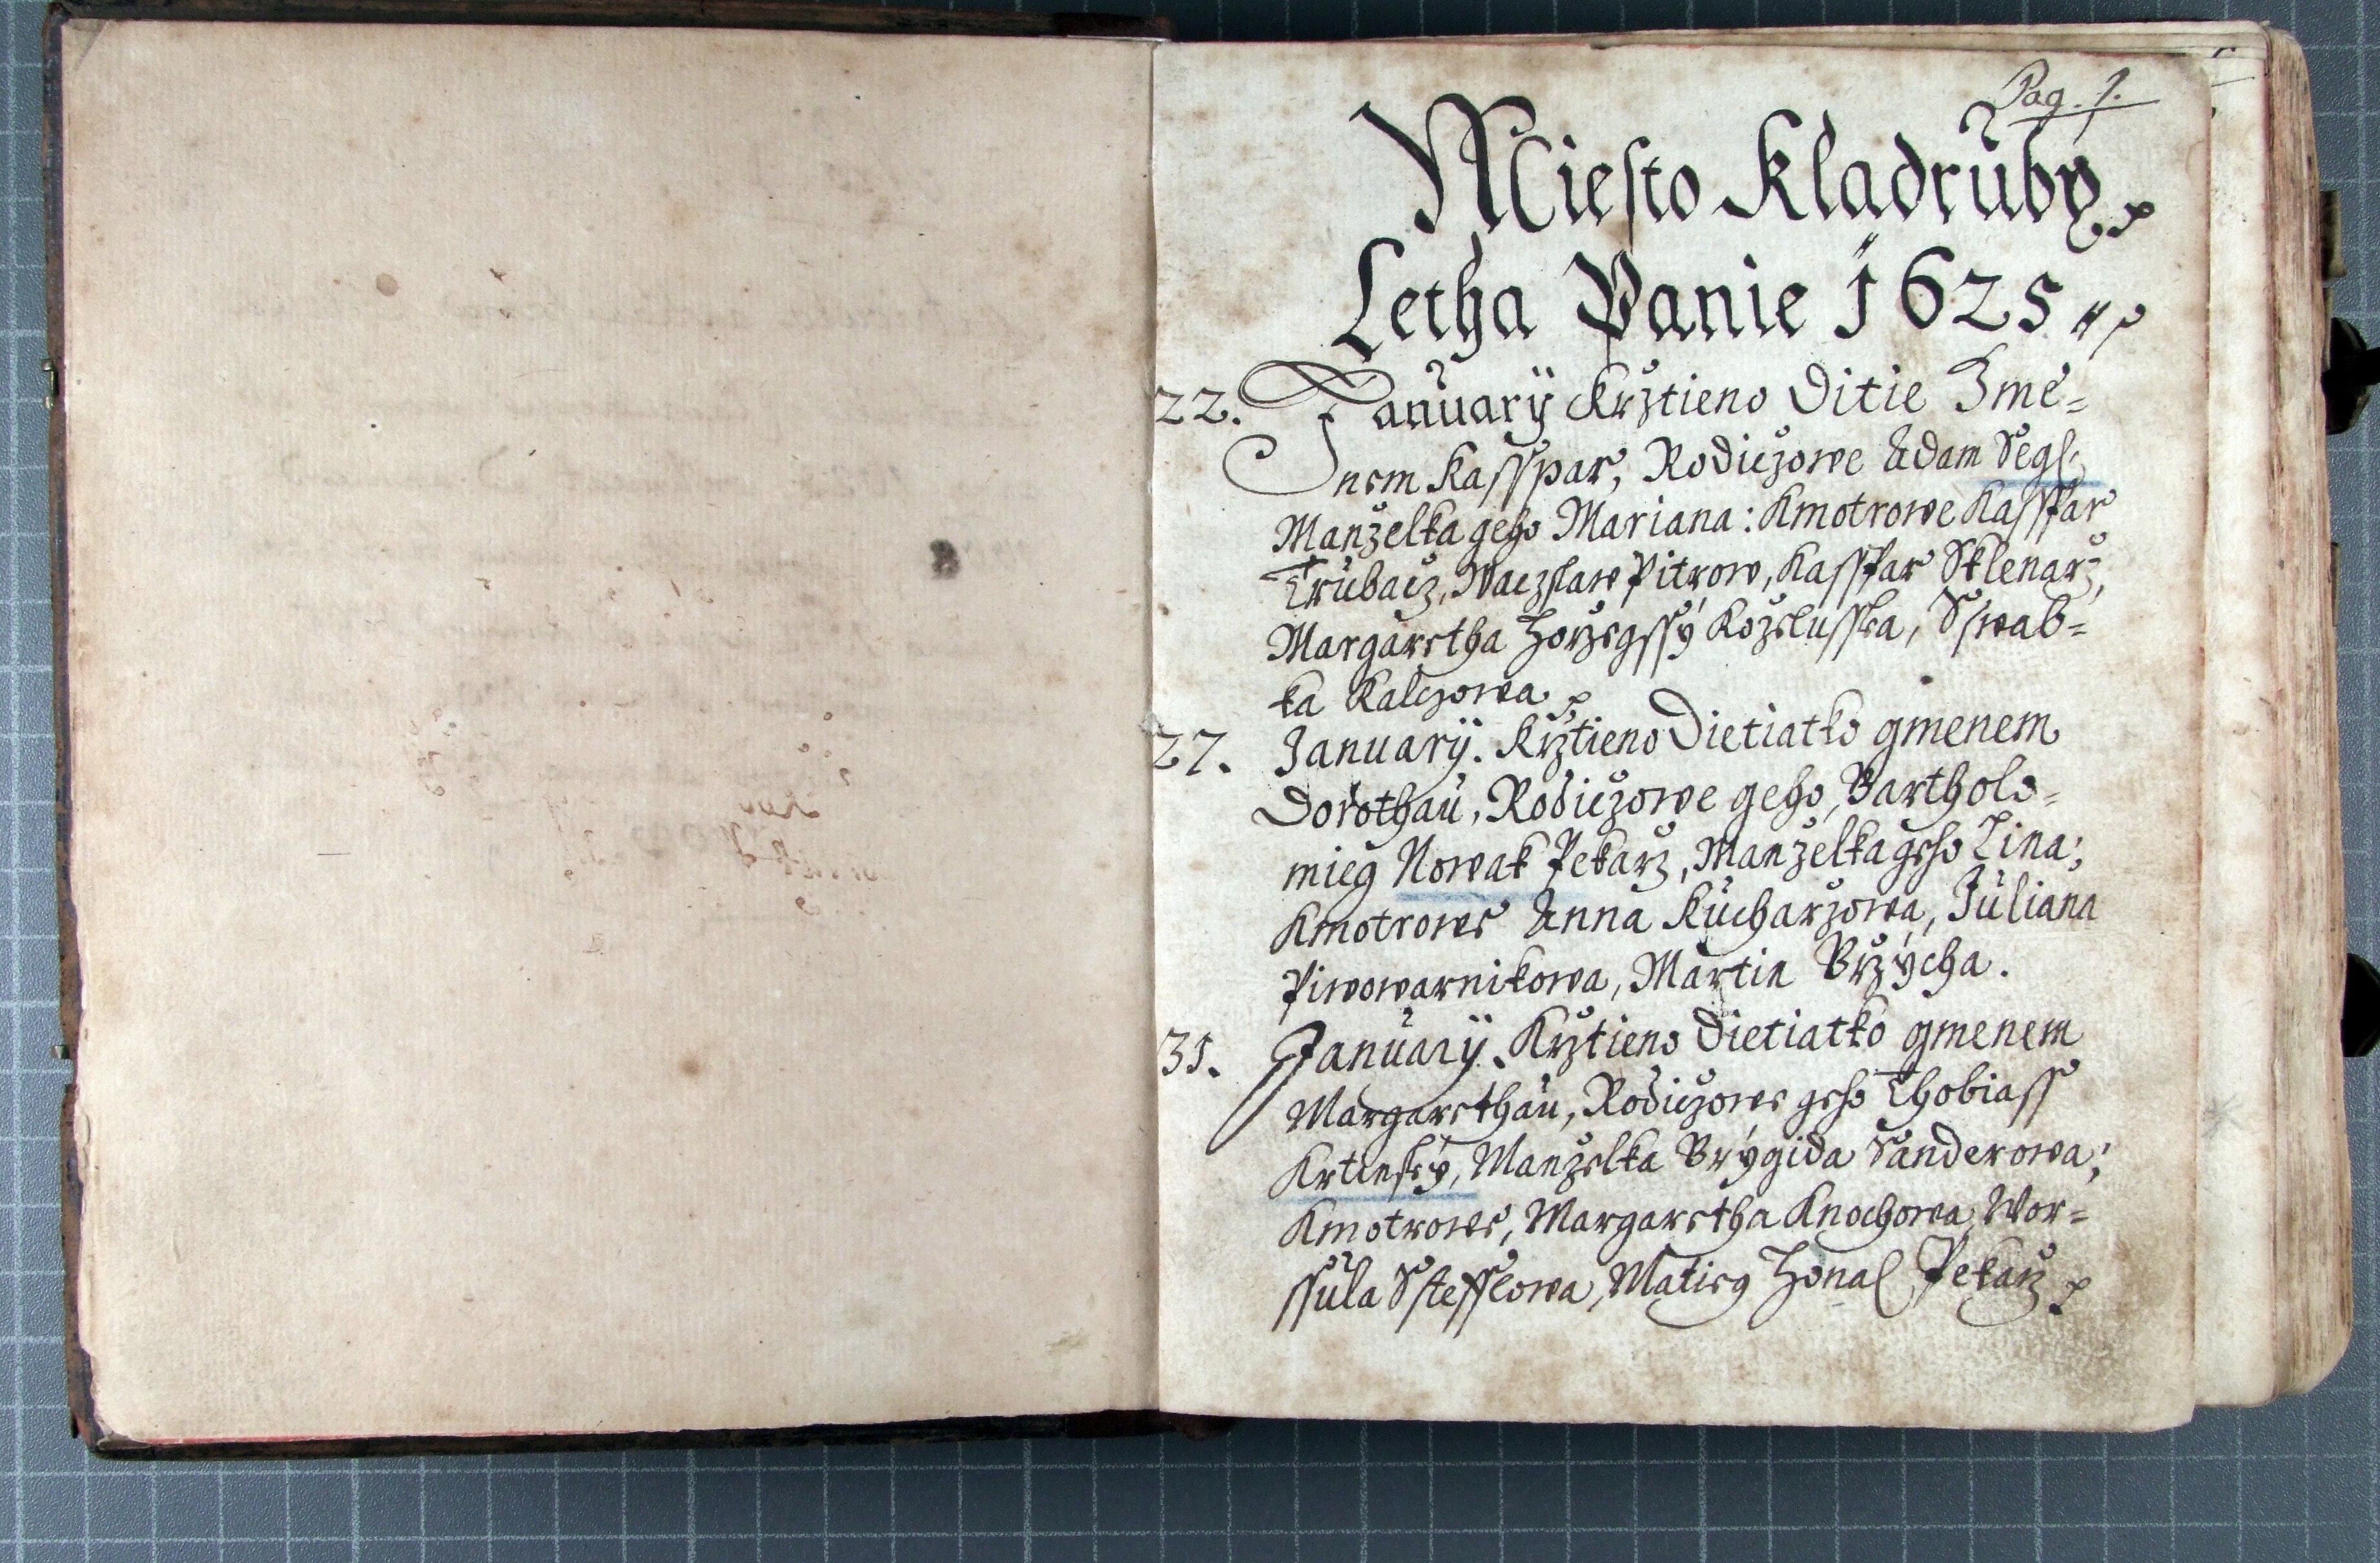 Pag. 1.
Miesto Kladruby
Letha Panie 1625
22. Januarÿ Krztieno Ditie Jme=
nem Kasspar, Rodiczowe Adam
Manželka geho Mariana: Kmotrowe Kasspar
Trubacz, Waczslaw Pitrow, Kasspar Sklenarz,
Margaretha Horzegssý Koželusska, Sswab=
ka Kalczowa
27. Januarÿ. Krztieno Dietiatko gmenem
Dorothau, Rodiczowe geho, Bartholo=
mieg Nowak Pekarz, Manželka geho Lina;
Kmotrowe Anna Kucharzowa, Juliana
Piwowarnikowa, Martin Brzýcha.
31. Januarÿ. Krztieno Dietiatko gmenem
Margarethau, Rodiczowe geho Thobiass
Manželka Brýgida Sanderowa;
Kmotrowe, Margaretha Knochowa, Wor=
ssula Sstefflowa, Matieg Pekarz